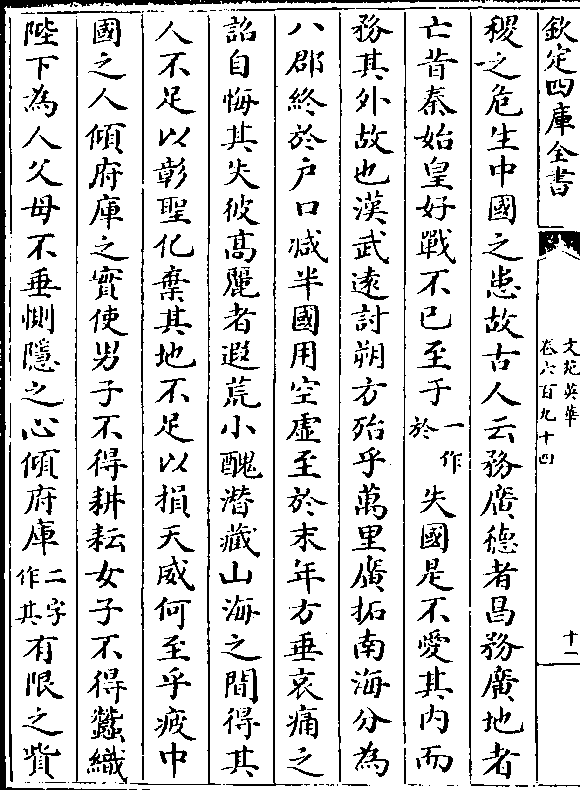 欽定四庫全書
文苑英華
卷六百九十四
十二
稷之危生中國之患故古人云務廣德者昌務廣地者
亡昔秦始皇好戰不已至于一作於失國是不愛其内而
務其外故也漢武遠討朔方殆乎萬里廣拓南海分為
八郡終於户口減半國用空虛至於末年方垂哀痛之
詔自悔其失彼高麗者遐荒小醜潛藏山海之間得其
人不足以彰聖化棄其地不足以損天威何至乎疲中
國之人傾府庫之實使男子不得耕耘女子不得蠶織
陛下為人父母不垂惻隱之心傾府庫二字作其有限之貲